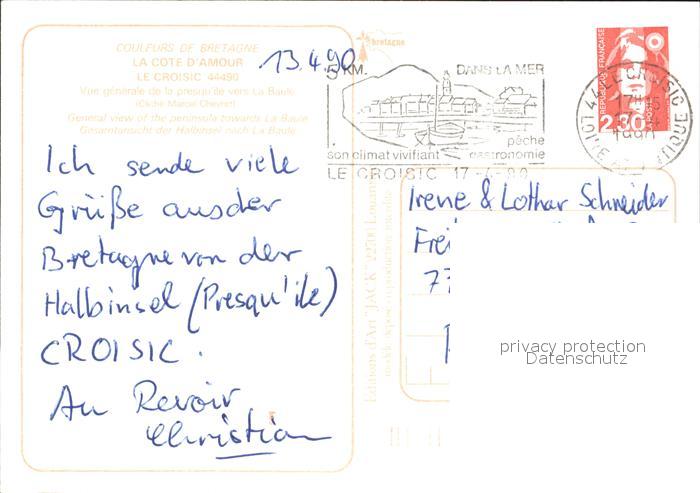 COULEURS DE BRETAGNE
LA COTE D'AMOUR
LE CROISIC 44490
Vue générale de la presqu'île vers La Baule
(Cliché Marcel Chevret)
General view of the peninsula towards La Baule
Gesamtansicht der Halbinsel nach La Baule
13.4.90
bretagne
5 KM. DANS LA MER
pêche
son climat vivifiant gastronomie
LE CROISIC 17-4-90
REPUBLIQUE FRANÇAISE
2,30
44 LE CROISIC
LOIRE ATLANTIQUE
Ich sende viele
Grüße aus der
Bretagne von der
Halbinsel (Presqu'île)
CROISIC.
Au Revoir
Christian
Editions d'Art "JACK"
Irene & Lothar Schneider
privacy protection
Datenschutz